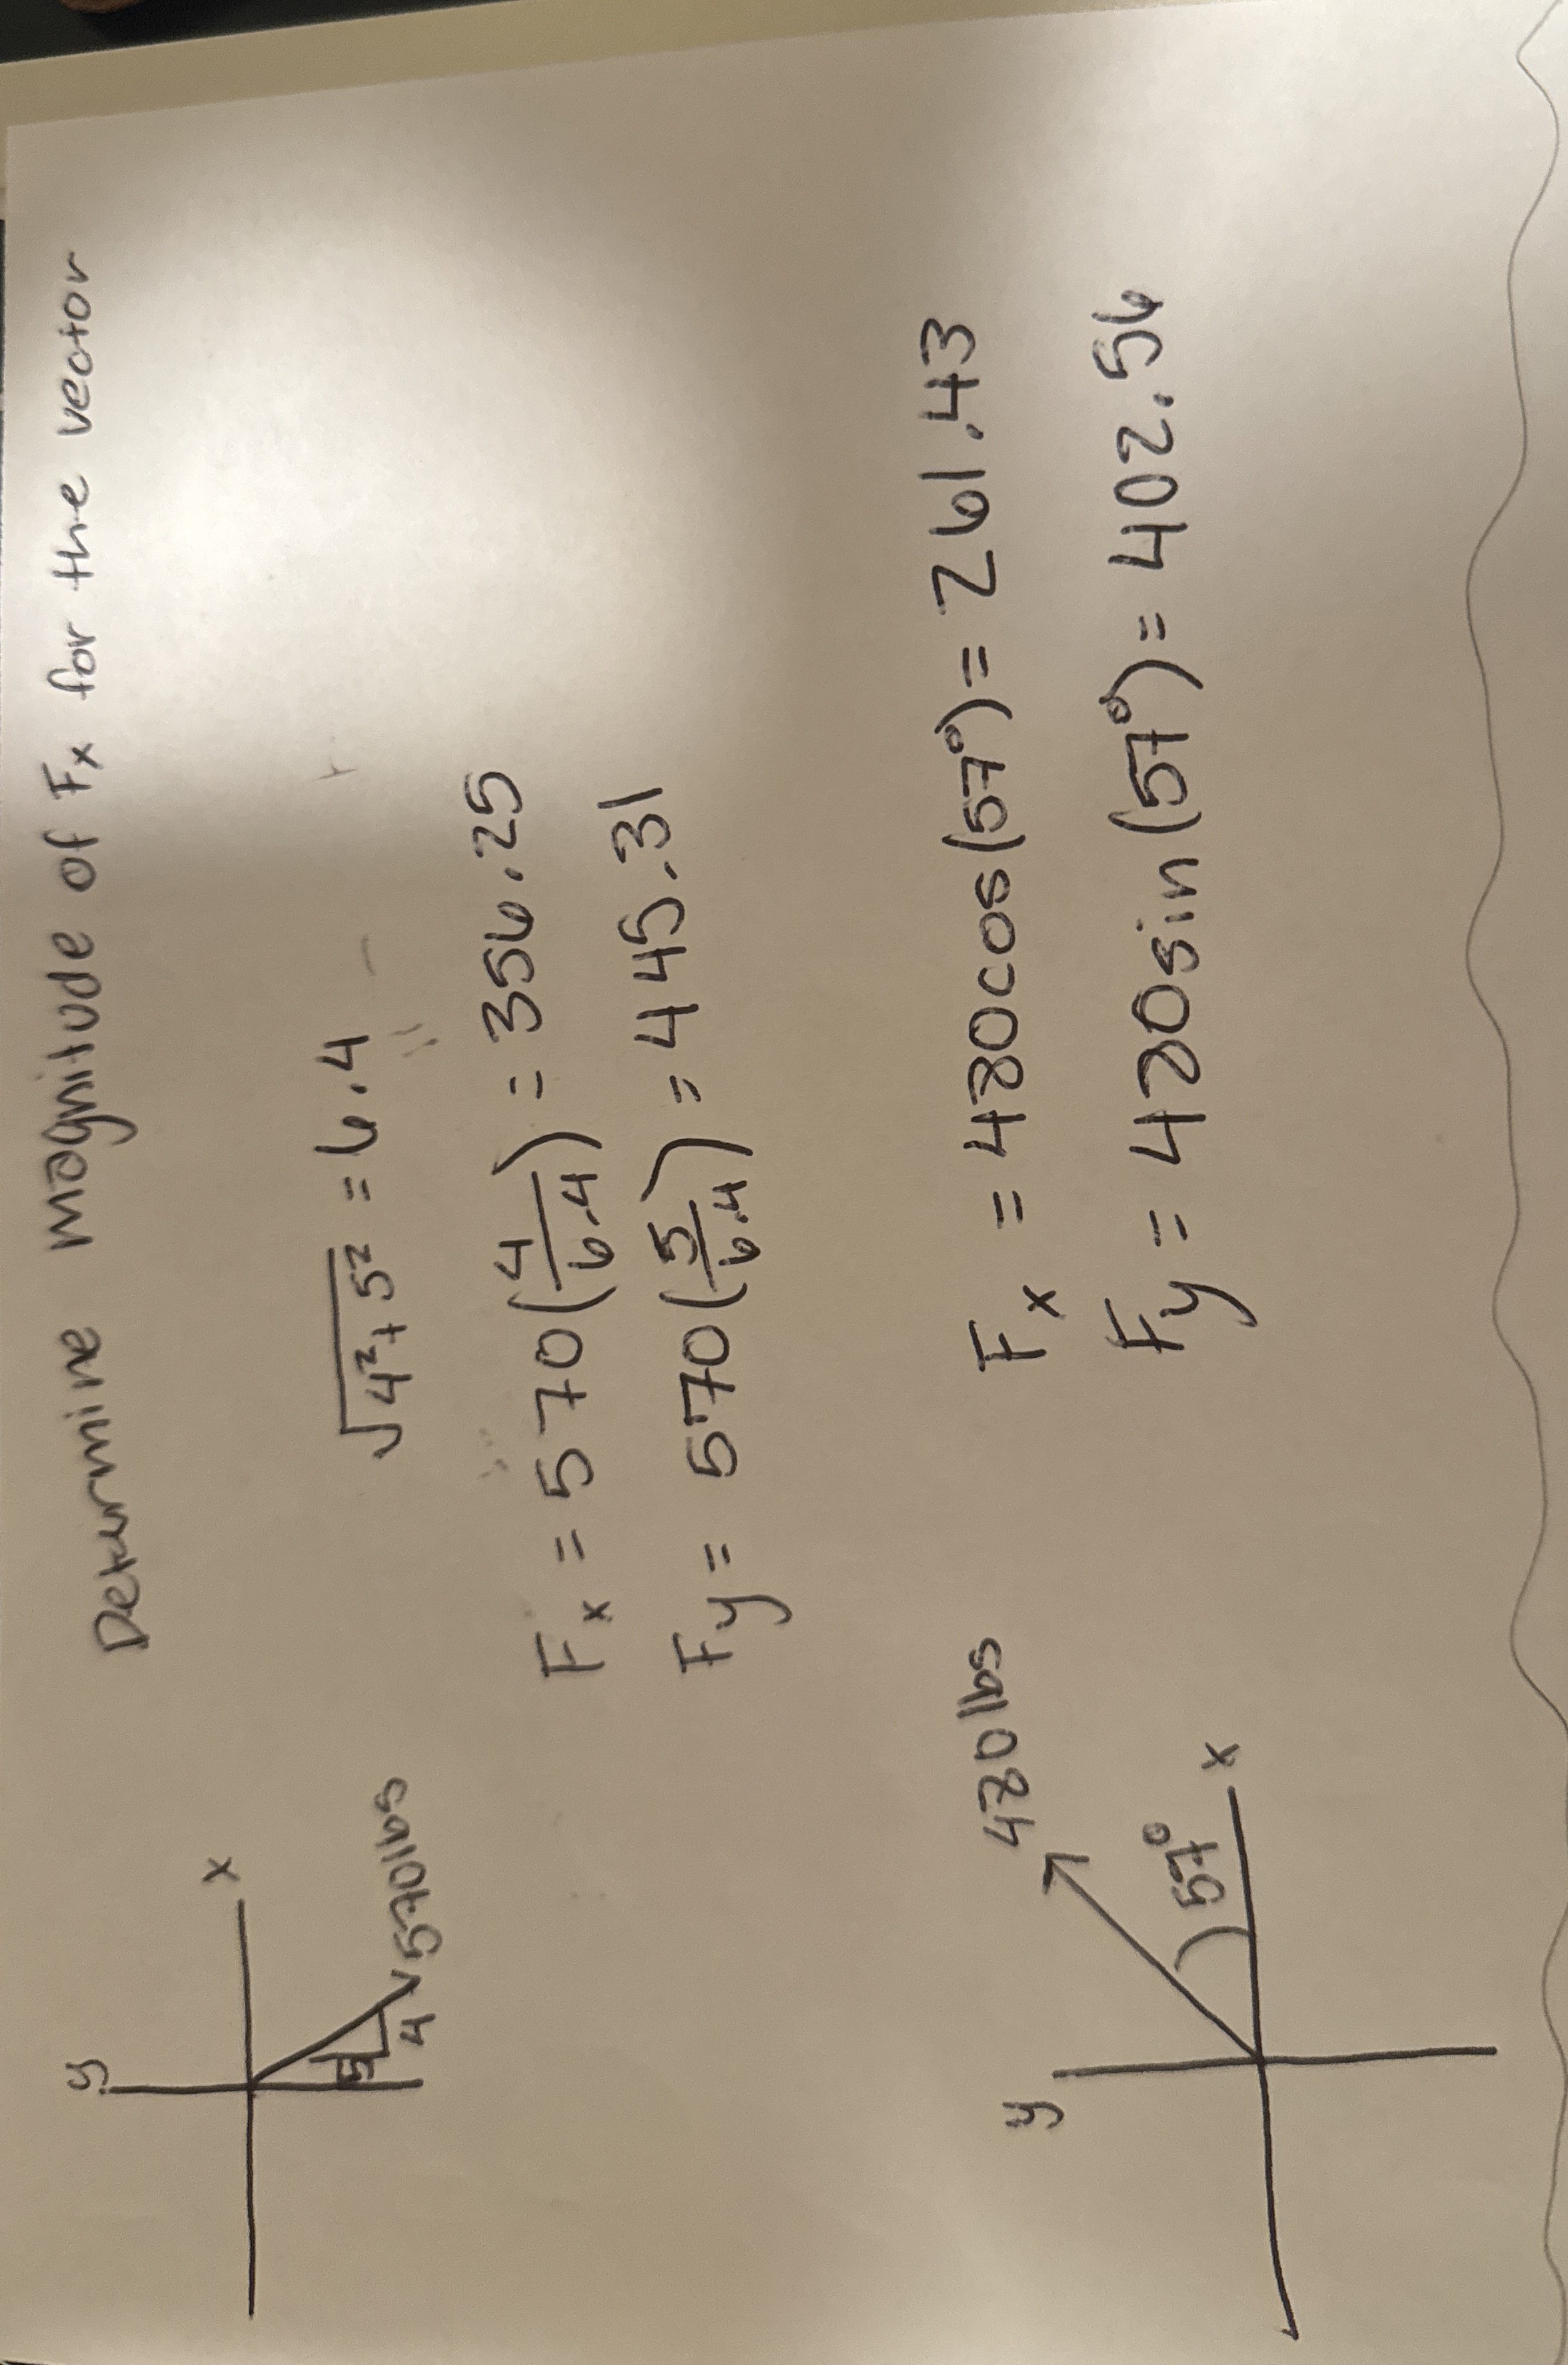 Determine magnitude of Fx for the vector
y
x
5
4
570lbs
√4²+5² = 6.4
Fx = 570(4/6.4) = 356.25
Fy = 570(5/6.4) = 445.31
y
480lbs
57°
x
Fx = 480cos(57°) = 261.43
Fy = 480sin(57°) = 402.56